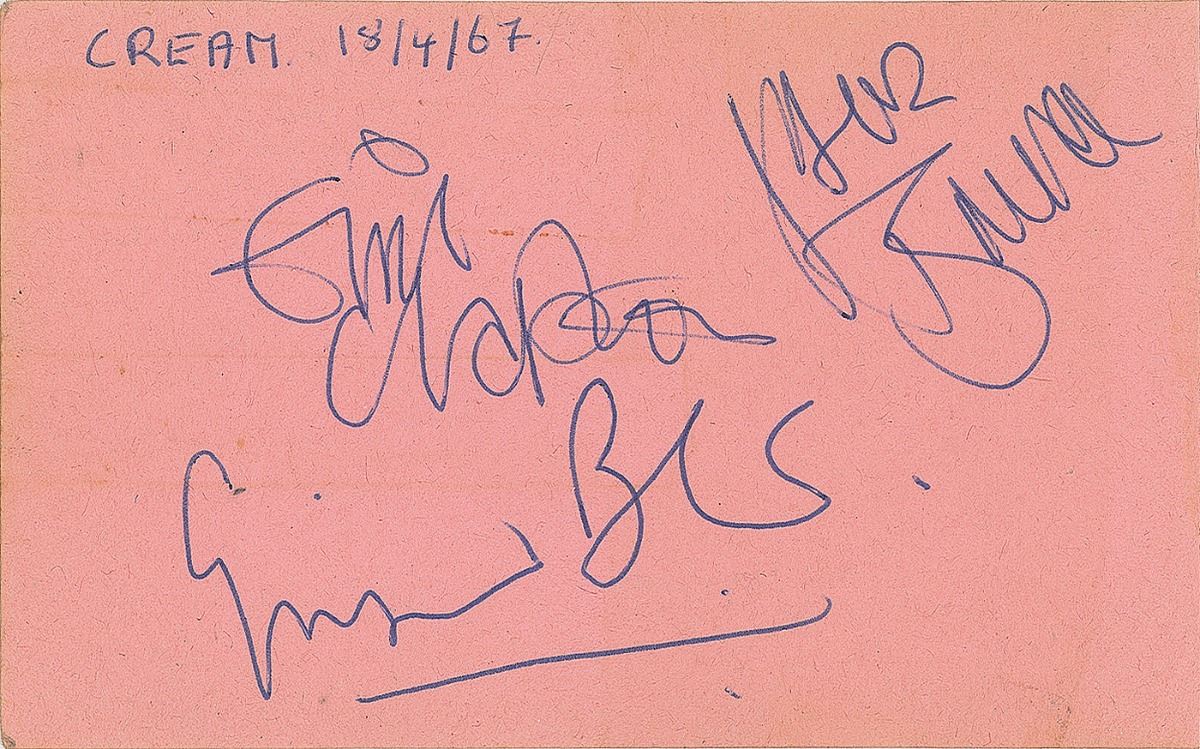 CREAM. 18/4/67.
Jack
Bruce
Eric Clapton
Ginger Baker